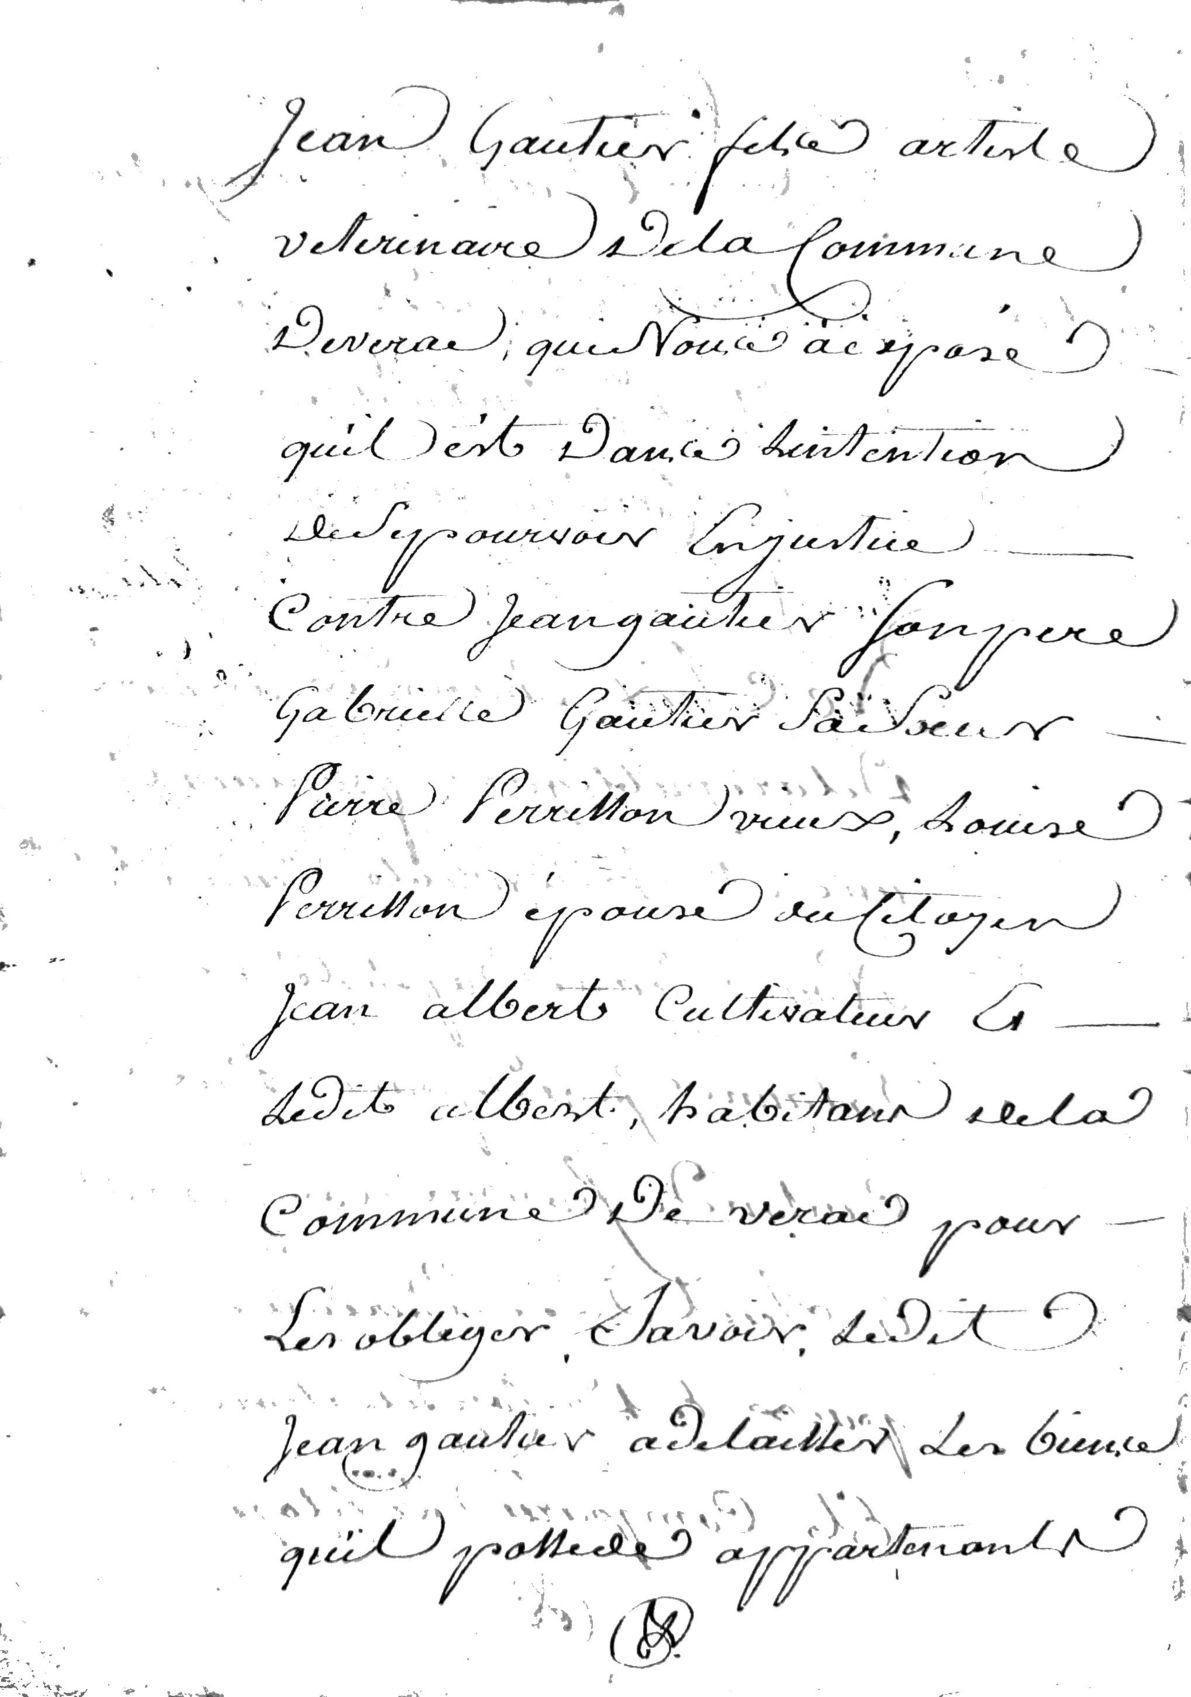 Jean Gautier fils artiste
veterinaire Dela Commune
Deverac, qui Nous à exposé
qu'il est Dans Lintention
de Sepourvoir Enjustice
Contre Jeangautier Sonpere
Gabrielle Gautier Sa Sœur
Pierre Perrillon vieux, Louise
Perrillon épouse du Citoyen
Jean albert Cultivateur Et
Ledit albert, habitans dela
Commune De verac pour
Les obliger, Savoir, Ledit
Jean gautier a Delaisser Les biens
qu'il possede appartenants